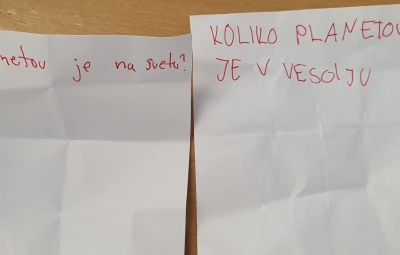 netov je na svetu?
KOLIKO PLANETOV
JE V VESOLJU